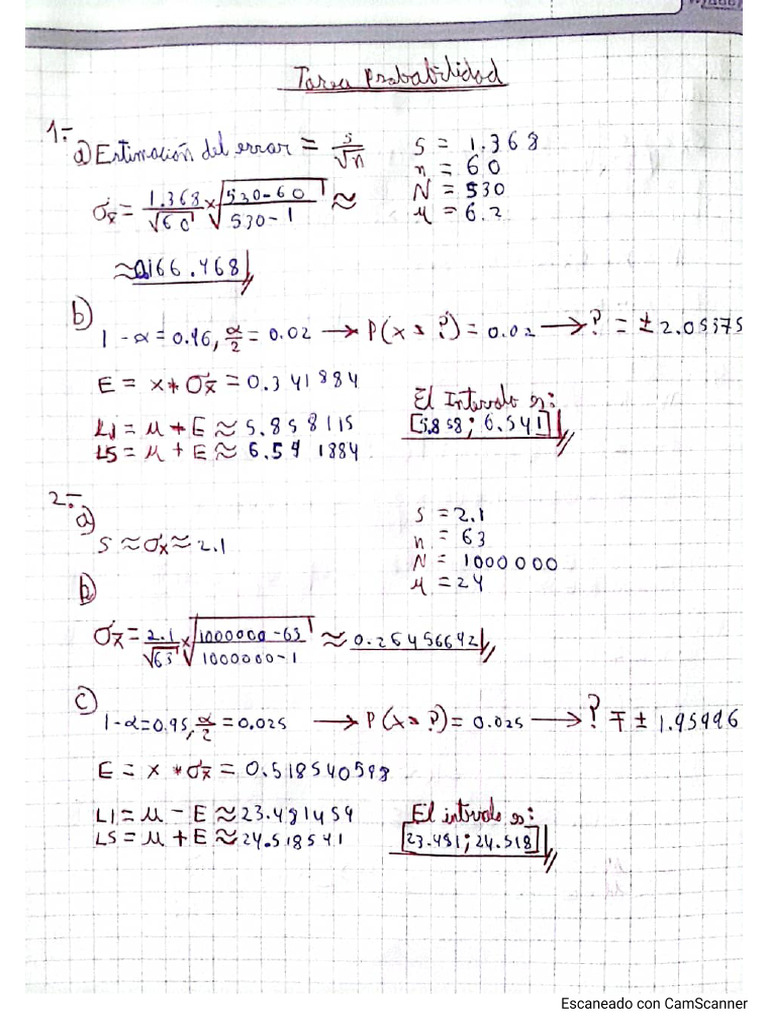 Tarea Probabilidad
1.-
a) Estimación del error = s/√n
S = 1.368
n = 60
N = 530
μ = 6.2
σx̄ = 1.368/√60 × √(530-60/530-1) ≈
≈ 0.166.468
b)
1-α = 0.96, α/2 = 0.02 → P(x > ?) = 0.02 → ? = ± 2.05375
E = x * σx̄ = 0.341884
LI = μ + E ≈ 5.858115
LS = μ + E ≈ 6.541884
El Intervalo es:
[5.858; 6.541]
2.-
a)
S ≈ σx ≈ 2.1
S = 2.1
n = 63
N = 1000000
μ = 24
b)
σx̄ = 2.1/√63 × √(1000000-63/1000000-1) ≈ 0.26456642
c)
1-α=0.95, α/2 = 0.025 → P(x > ?) = 0.025 → ? = ± 1.95996
E = x * σx̄ = 0.518540598
LI = μ - E ≈ 23.481459
LS = μ + E ≈ 24.518541
El intervalo es:
[23.481; 24.518]
Escaneado con CamScanner